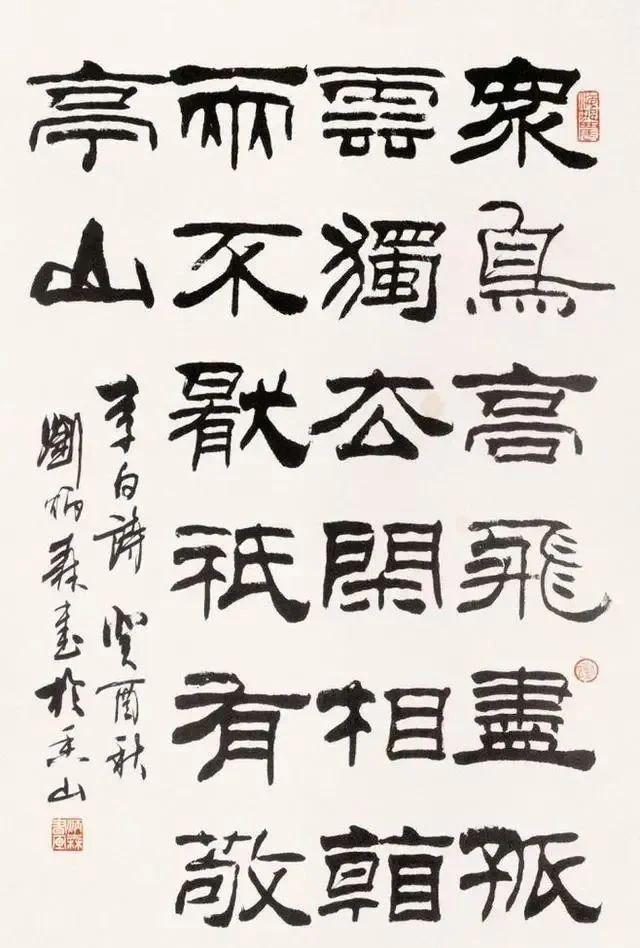 眾鳥高飛盡孤
雲獨去閑相看
兩不猒祇有敬
亭山
李白詩 癸酉秋
劉炳森書於香山